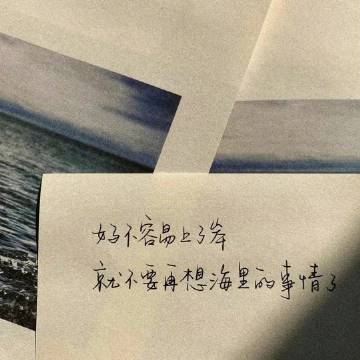 好不容易上了岸
就不要再想海里的事情了